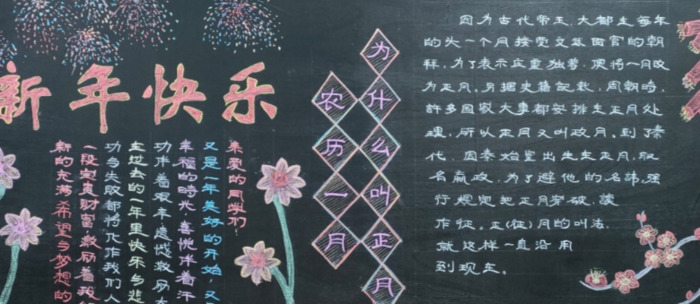 新年快乐
亲爱的同学们
又是一年美好的开始,又
幸福的时光,喜悦伴着汗
功伴着艰辛遗憾
在过去的一年里快乐与悲
功与失败都将化作我们人
一段宝贵财富激励着我
新的充满希望与梦想的
为什么叫正月
农历一月
因为古代帝王,大都在每年
的头一个月接受文武百官的朝
拜,为了表示庄重独着,便将一月改
为正月,另据史籍记载,周朝时,
許多国家大事都安排在正月处
理,所以正月又叫政月。到了秦
代,因秦始皇出生在正月,取
名嬴政,为了避他的名諱,强
行规定把正月的破,读
作征。正(征)月的叫法,
就这样一直沿用
到现在。